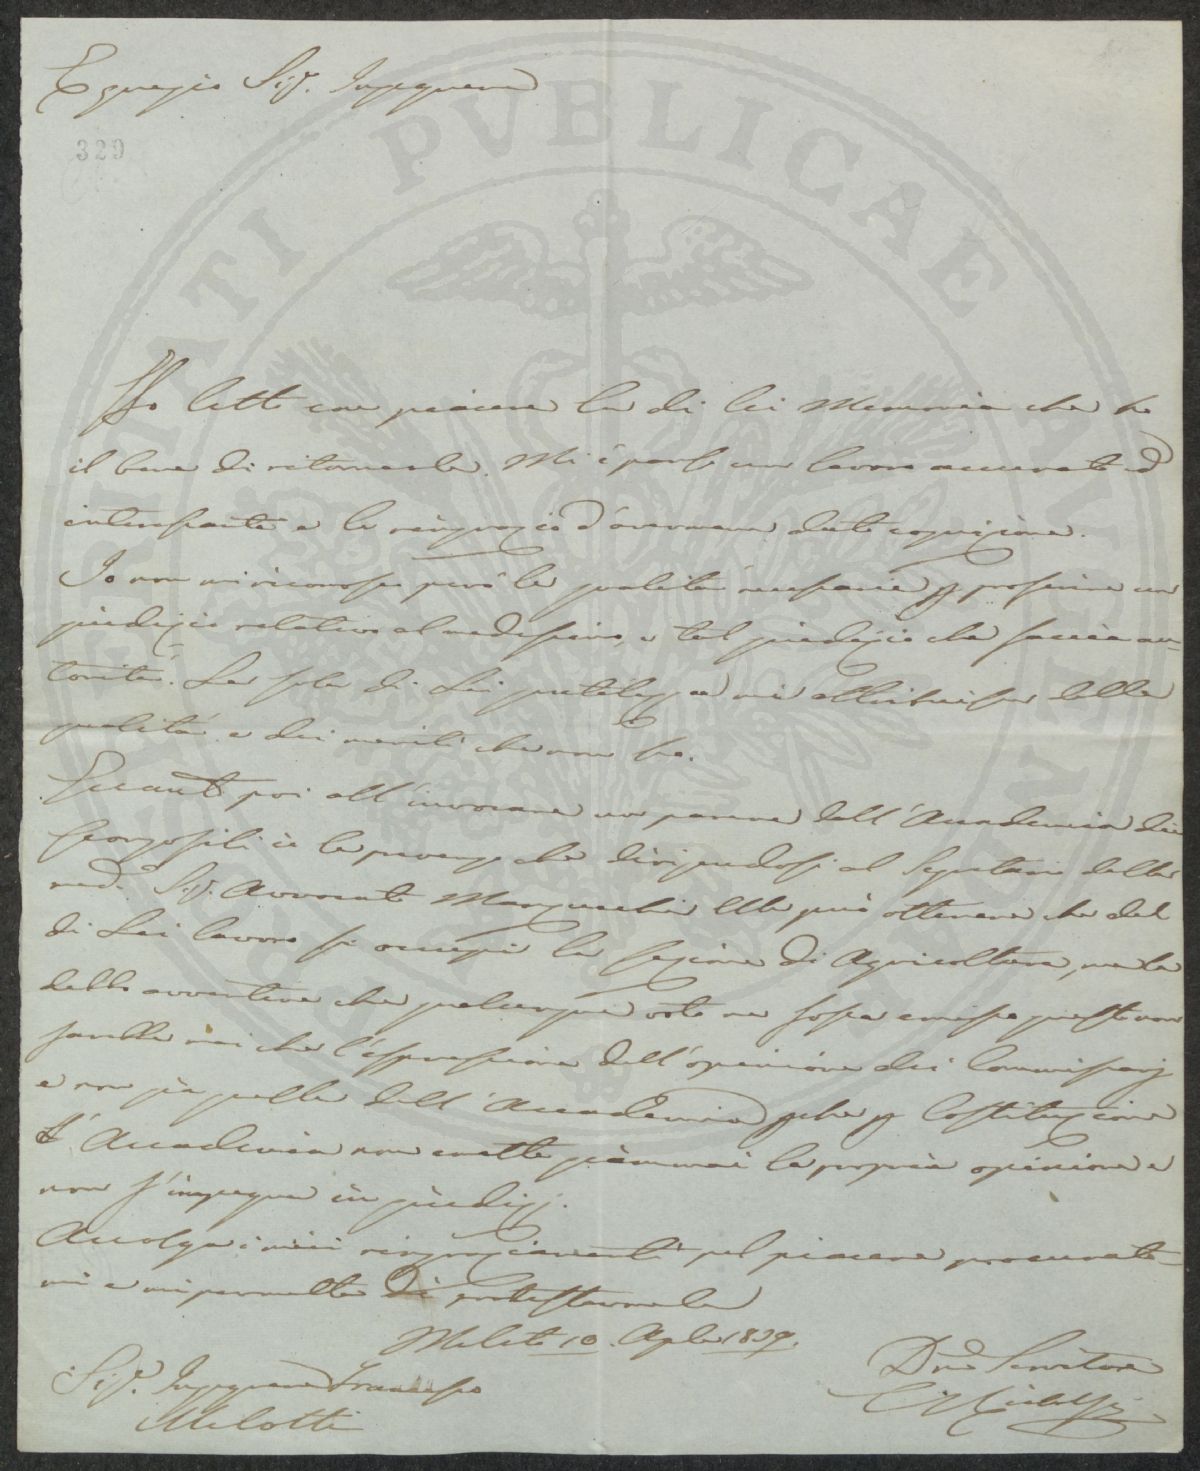 Egregio Sig.r Ingegnere
329
Ho letto con piacere la di lei Memoria che ho
il bene di ritornarle. Mi è parso un lavoro accurato ed
interessante e la ringrazio d'avermene data cognizione.
Io non mi riconosco però le qualità necessarie p proferire un
giudizio relativo al medesimo, e tal giudizio che faccia au=
torità. La sola di Lei gentilezza mi attribuisce delle
qualità e dei meriti che non ho.
Quanto poi all'invocare un parere dell'Accademia dei
Georgofili io la prevengo che dirigendosi al Segretario della
med.a Sig.r Avvocato Marzucchi Ella può ottenere che del
di Lei lavoro si occupi la sezione di Agricoltura, ma la
debbo avvertire che qualunque voto ne fosse emisso questo non
sarebbe mai che l'espressione dell'opinione dei Commissarj
e non già quella dell'Accademia p
che p Costituzione
L'Accademia non emette giammai la propria opinione e
non s'impegna in giudizj.
Accolga i miei ringraziamenti pel piacere procurato=
mi e mi permetta di protestarmele
Meleto 10. Aple 1839.
Dmo Servitore
C. Ridolfi
Sig.r Ingegnere Francesco
Milotti
PVBLICAE